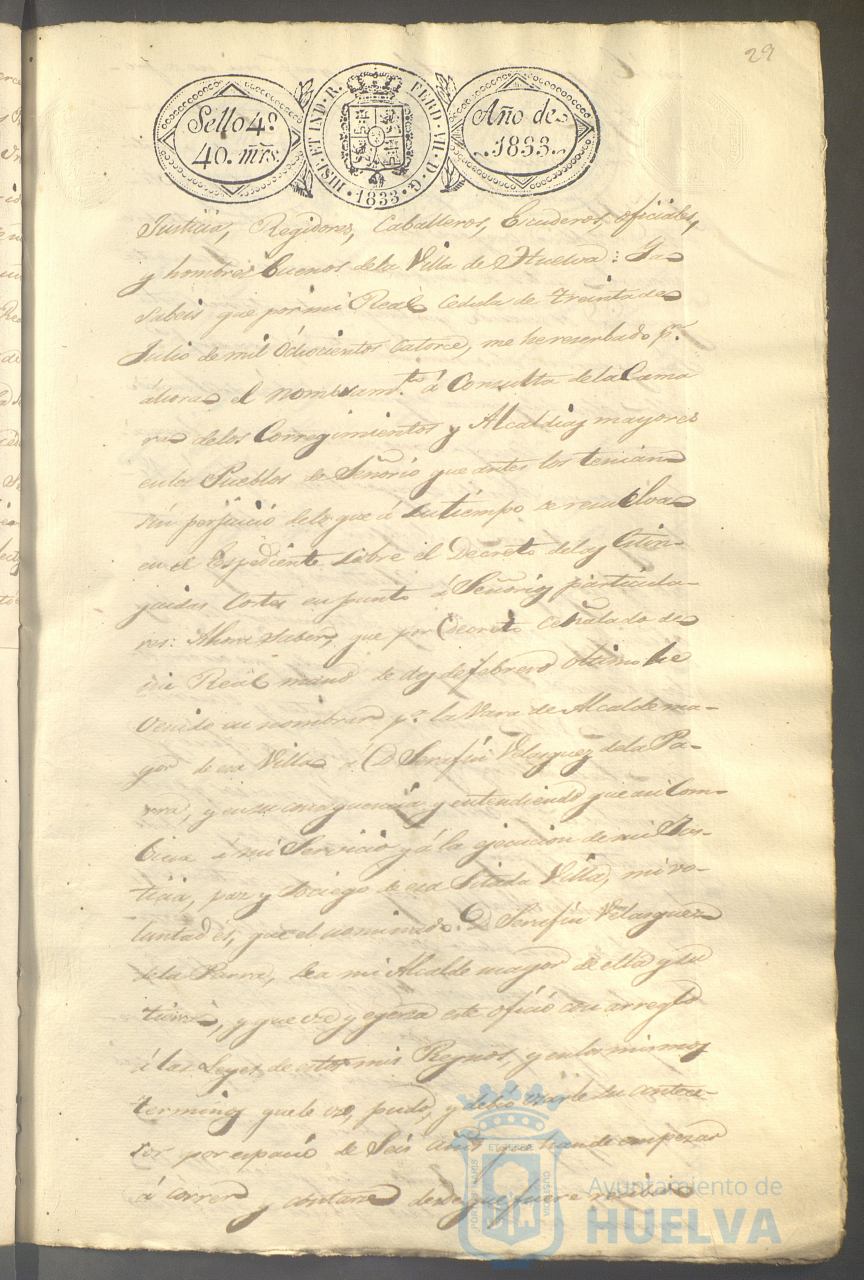 29
Sello 4º
40. mrs.
HISP. ET IND. R. FERD. VII. D. G. 1833
Año de
1833.
Justicia, Regidores, Caballeros, Escuderos, oficiales,
y hombres buenos de la Villa de Huelva: Ya
sabeis que por mi Real Cedula de treinta de
Julio de mil Ochocientos Catorce, me he reserbado pr.
ahora el nombramto. á Consulta de la Cama
ra de los Corregimientos y Alcaldias mayores
en los Pueblos de Señorio que antes los tenian
sin perjuicio de lo que á su tiempo se resuelva
en el Espediente sobre el Decreto de las Estin-
guidas Cortes en punto á Señorios particula-
res: Ahora sabed, que por Decreto señalado de
mi Real mano de dos de febrero último he
venido en nombrar pa. la Vara de Alcalde ma-
yor de esa Villa á D. Serafin Velazquez de la Pa-
rra, y en su consequencia y entendiendo que asi com-
biene á mi Servicio y á la ejecucion de mi Jus-
ticia, paz y sociego de esa Citada Villa, mi vo-
luntad es, que el nominado D. Serafin Velasquez
de la Parra, sea mi Alcalde mayor de ella y su
tierra, y que use y egerza este oficio con arreglo
á las Leyes de estos mis Reynos, y en los mismos
terminos que le usó, pudo, y debió usarle su antece-
sor por espacio de Seis años que han de empezar
á correr y contarse desde que fuere recibido
Ayuntamiento de
HUELVA